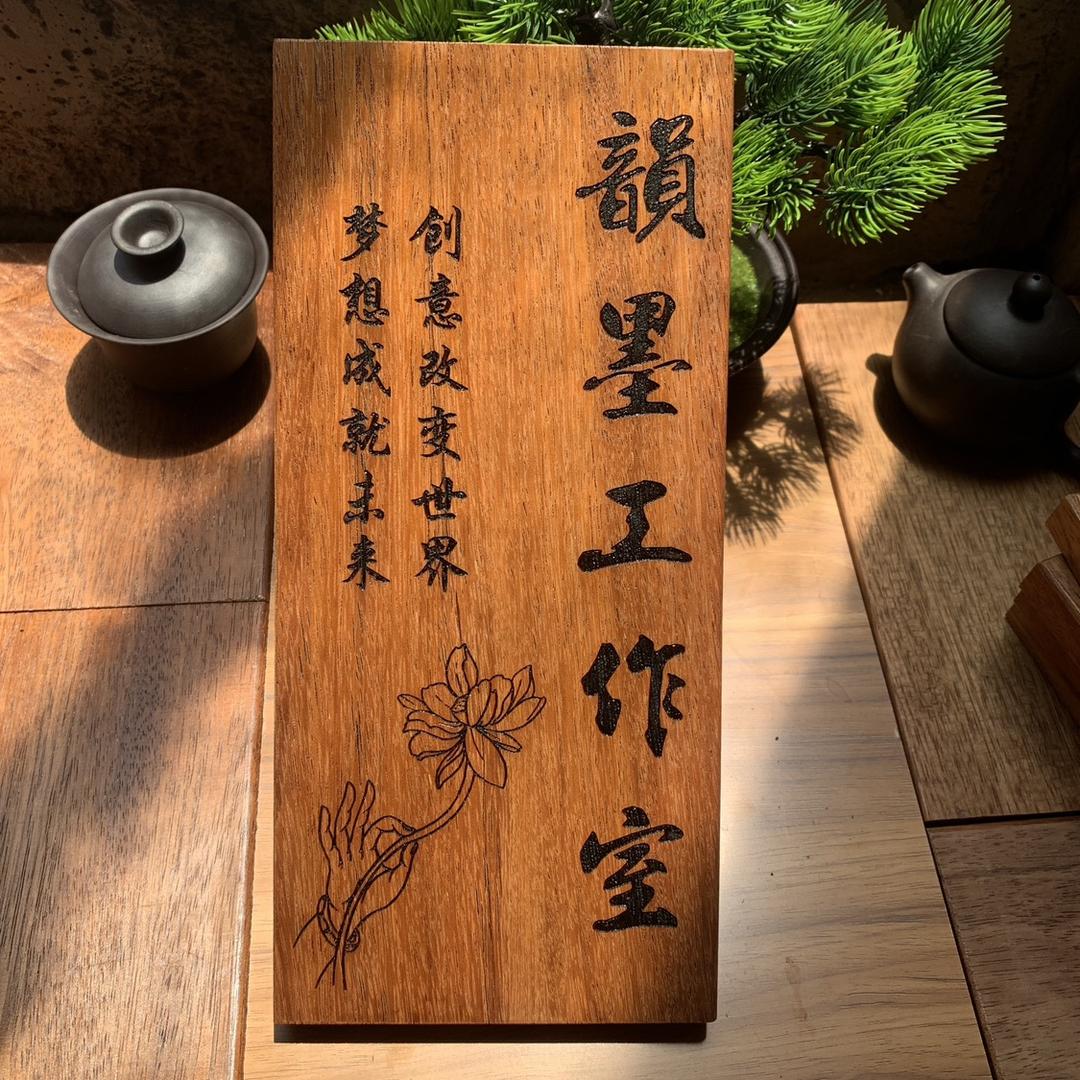 韻墨工作室
创意改变世界
梦想成就未来